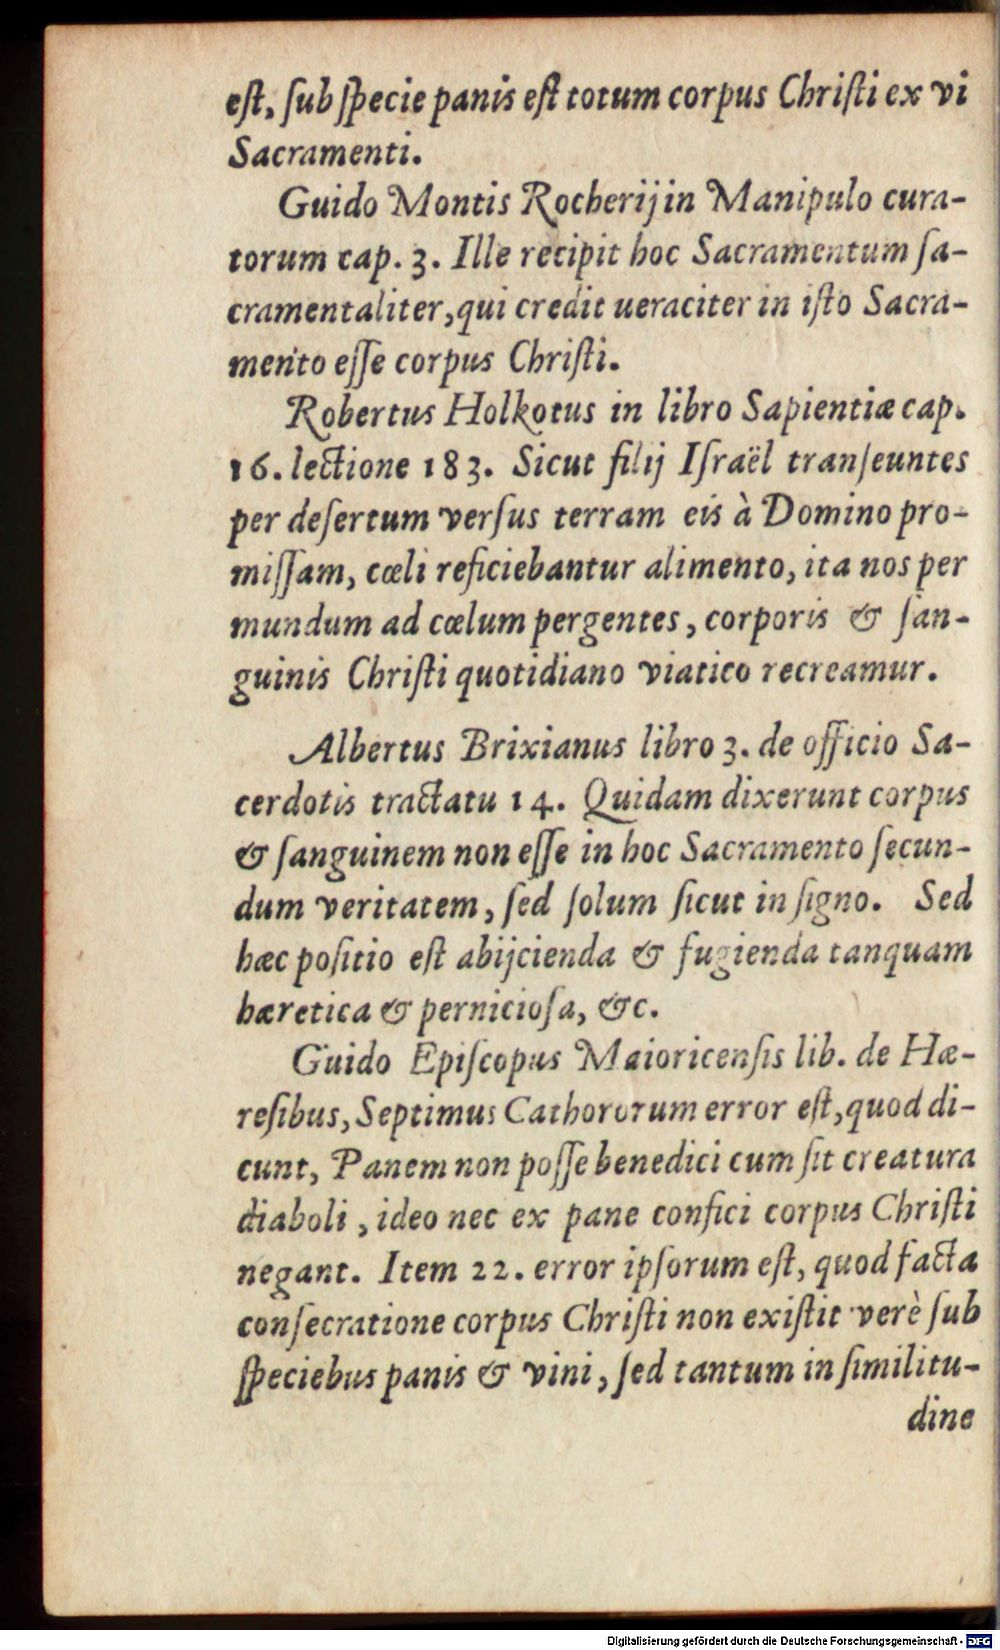 eſt, ſub ſpecie panis eſt totum corpus Chriſti ex vi
Sacramenti.
Guido Montis Rocherij in Manipulo cura-
torum cap. 3. Ille recipit hoc Sacramentum ſa-
cramentaliter, qui credit ueraciter in iſto Sacra-
mento eſſe corpus Chriſti.
Robertus Holkotus in libro Sapientiæ cap.
16. lectione 183. Sicut filij Iſraël tranſeuntes
per deſertum verſus terram eis à Domino pro-
miſſam, cœli reficiebantur alimento, ita nos per
mundum ad cœlum pergentes, corporis & ſan-
guinis Chriſti quotidiano viatico recreamur.
Albertus Brixianus libro 3. de officio Sa-
cerdotis tractatu 14. Quidam dixerunt corpus
& ſanguinem non eſſe in hoc Sacramento ſecun-
dum veritatem, ſed ſolum ſicut in ſigno. Sed
hæc poſitio eſt abijcienda & fugienda tanquam
hæretica & pernicioſa, &c.
Guido Epiſcopus Maioricenſis lib. de Hæ-
reſibus, Septimus Cathororum error eſt, quod di-
cunt, Panem non poſſe benedici cum ſit creatura
diaboli, ideo nec ex pane confici corpus Chriſti
negant. Item 22. error ipſorum eſt, quod facta
conſecratione corpus Chriſti non exiſtit verè ſub
ſpeciebus panis & vini, ſed tantum in ſimilitu-
dine
Digitalisierung gefördert durch die Deutsche Forschungsgemeinschaft - DFG